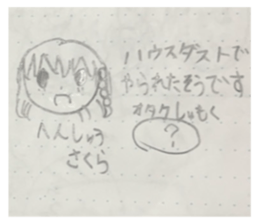 ハウスダストで
やられたそうです
オタクしゅもく
?
へんしゅう
さくら